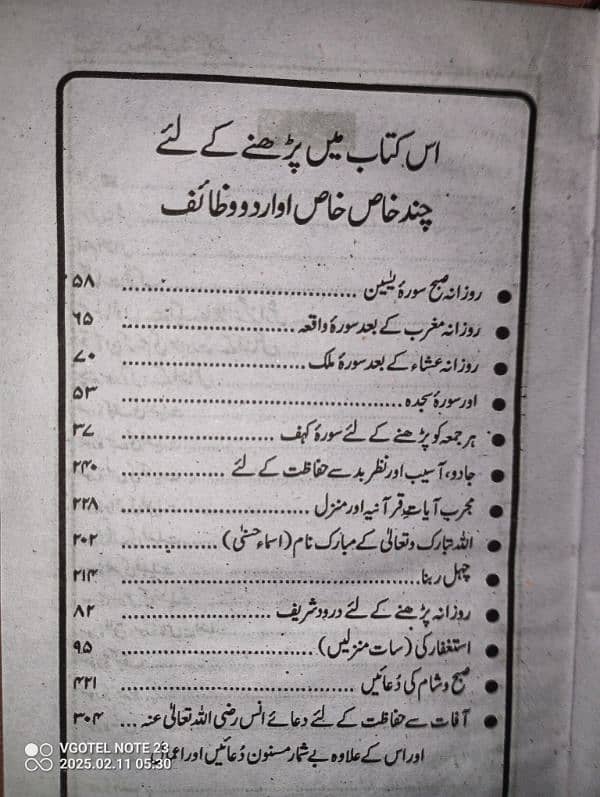 اس کتاب میں پڑھنے کے لئے
چند خاص خاص اوراد و وظائف
● روزانہ صبح سورۂ یٰسین ........................ ۵۸
● روزانہ مغرب کے بعد سورۂ واقعہ ........................ ۶۵
● روزانہ عشاء کے بعد سورۂ ملک ........................ ۷۰
● اور سورۂ سجدہ ........................ ۵۳
● ہر جمعہ کو پڑھنے کے لئے سورۂ کہف ........................ ۳۷
● جادو، آسیب اور نظر بد سے حفاظت کے لئے ................ ۲۴۰
● مجرب آیاتِ قرآنیہ اور منزل ........................ ۲۲۸
● اللہ تبارک وتعالیٰ کے مبارک نام (اسماء حسنیٰ) ........... ۲۰۲
● چہل ربنا ........................ ۲۱۴
● روزانہ پڑھنے کے لئے درود شریف ........................ ۸۲
● استغفار کی (سات منزلیں) ........................ ۹۵
● صبح و شام کی دُعائیں ........................ ۴۲۱
● آفات سے حفاظت کے لئے دعائے انس رضی اللہ تعالیٰ عنہ ... ۳۰۴
اور اس کے علاوہ بے شمار مسنون دُعائیں اور
VGOTEL NOTE 23
2025.02.11 05:30